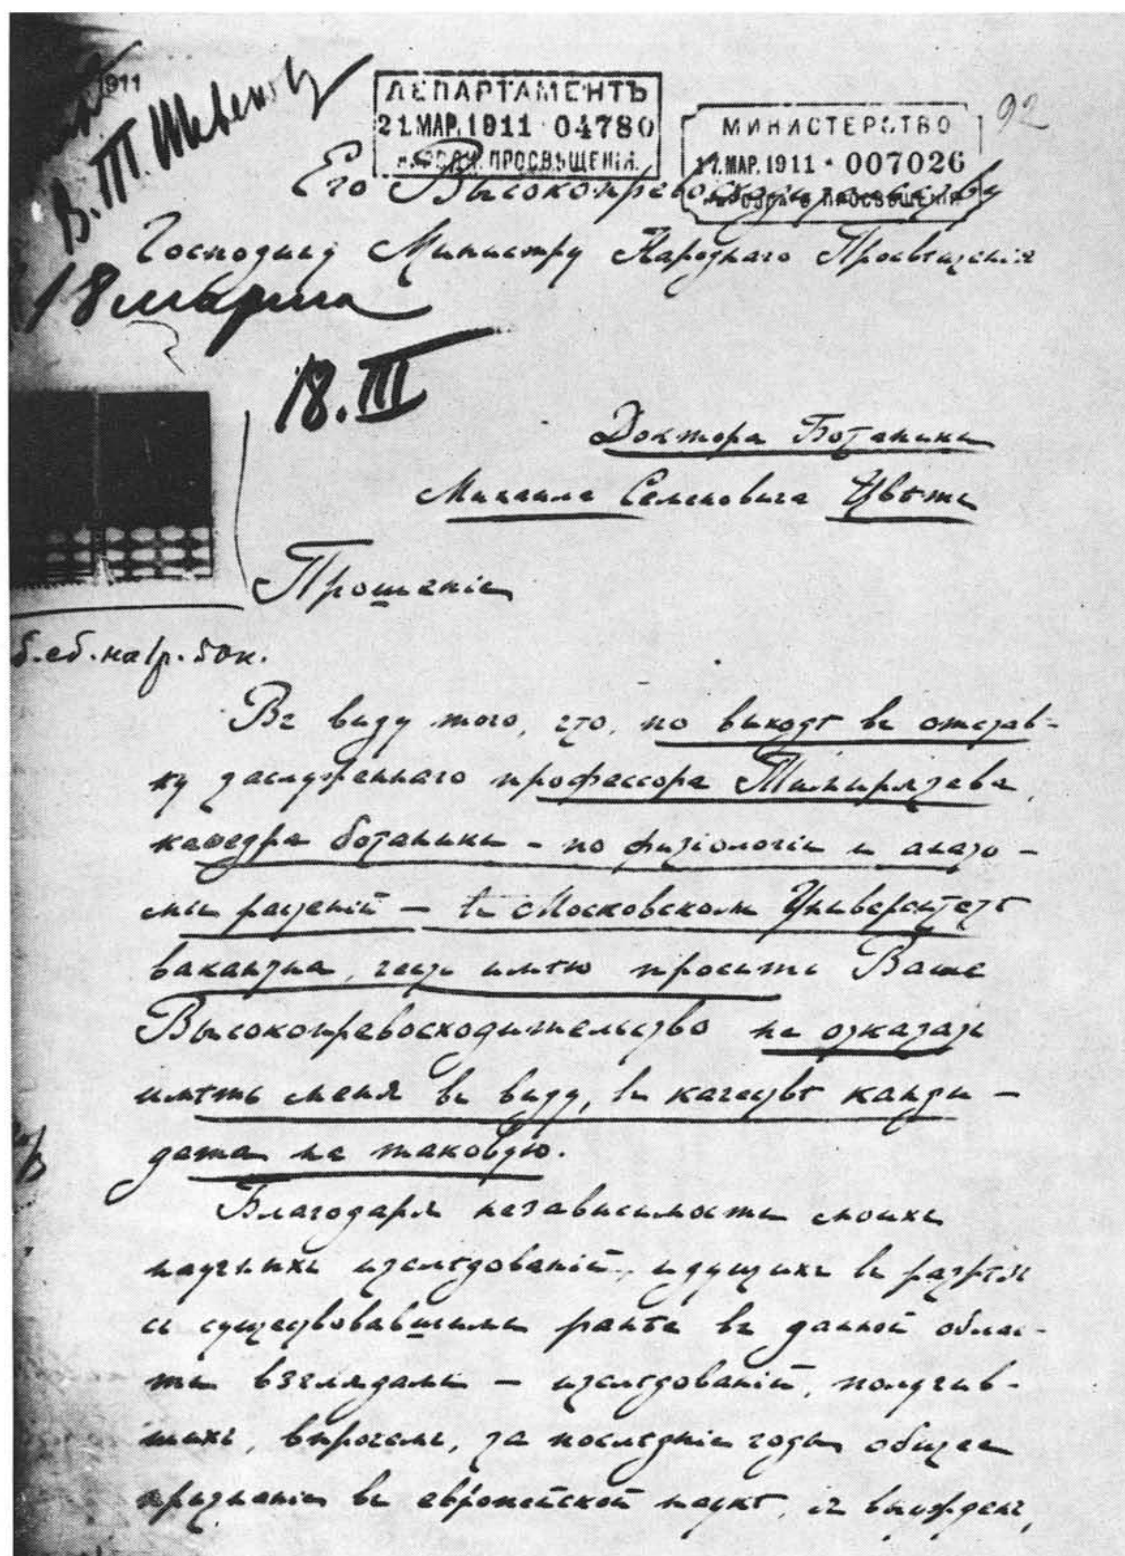 1911
В. Т. Шевяков
ДЕПАРТАМЕНТЪ
21.МАР.1911 · 04780
НАРОДН. ПРОСВѢЩЕНІЯ.
МИНИСТЕРСТВО
17.МАР.1911 · 007026
НАРОДНАГО ПРОСВѢЩЕНІЯ
92
Его Высокопревосходительству
Господину Министру Народнаго Просвѣщенія
18 марта
18.III
Доктора Ботаники
Михаила Семеновича Цвѣта
Прошеніе
Въ виду того, что, по выходѣ въ отстав-
ку заслуженнаго профессора Тимирязева,
каѳедра ботаники – по физіологіи и анато-
міи растеній – въ Московскомъ Университетѣ
вакантна, честь имѣю просить Ваше
Высокопревосходительство не отказать
имѣть меня въ виду, въ качествѣ канди-
дата на таковую.
Благодаря независимости моихъ
научныхъ изслѣдованій, идущихъ въ разрѣзъ
съ существовавшими ранѣе въ данной облас-
ти взглядами – изслѣдованій, получив-
шихъ, впрочемъ, за послѣдніе годы общее
признаніе въ европейской наукѣ, я вынужденъ,